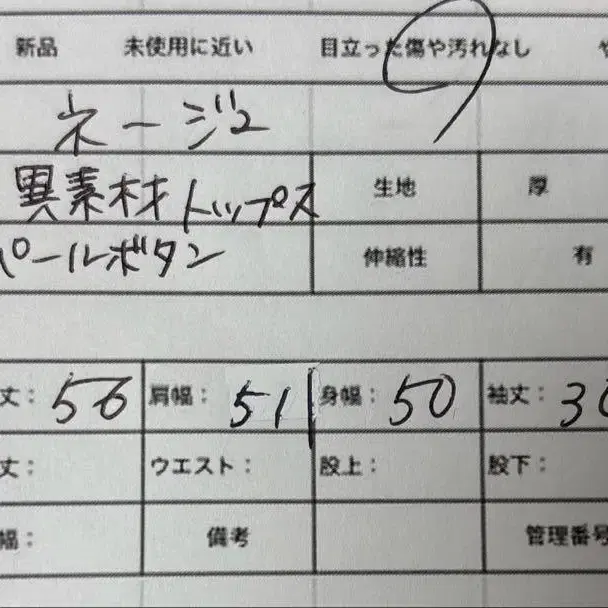 新品 未使用に近い 目立った傷や汚れなし や
ネージュ
異素材トップス 生地 厚
パールボタン 伸縮性 有
丈: 56 肩幅: 51 身幅: 50 袖丈: 3
丈: ウエスト: 股上: 股下:
幅: 備考 管理番号